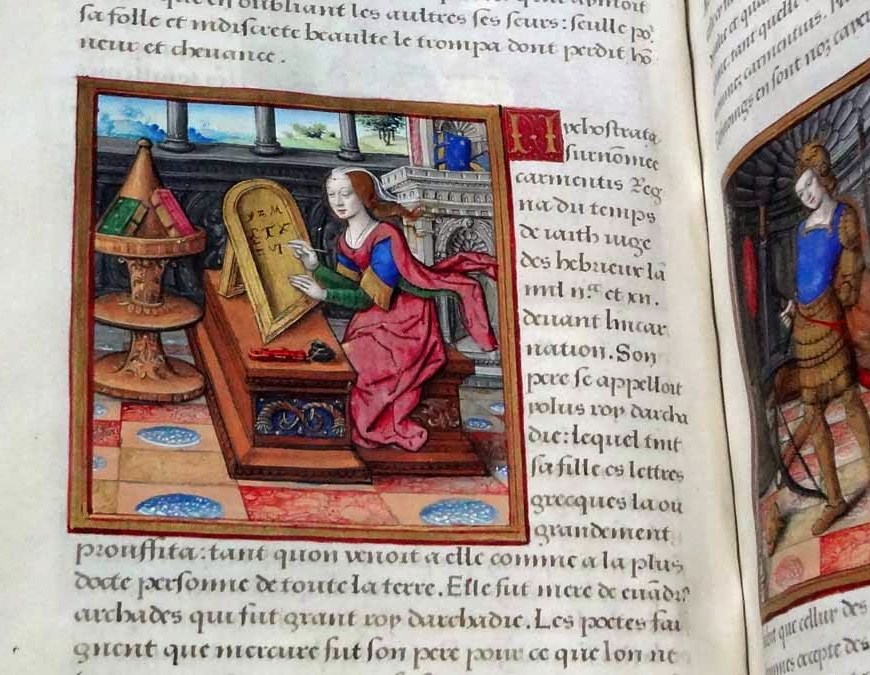 en oubliant les aultres ses seurs: seulle
sa folle et indiscrete beaulte le trompa dont perdit hõ
neur et chevance.
Nychostrata
surnõmee
carmentis Reg
na du temps
de iaith iuge
des hebrieux la
mil et xii.
devant lincar
nation. Son
pere se appelloit
yolus roy darcha
die: lequel tint
sa fille es lettres
grecques la ou
grandement
prouffita: tant quon venoit a elle comme a la plus
docte personne de toute la terre. Elle fut mere de
archades qui fut grant roy darchadie. Les poetes fai
gnent que mercure fut son pere pour ce que lon ne
tant quelle
en sont noz
que cellui des
accepte des